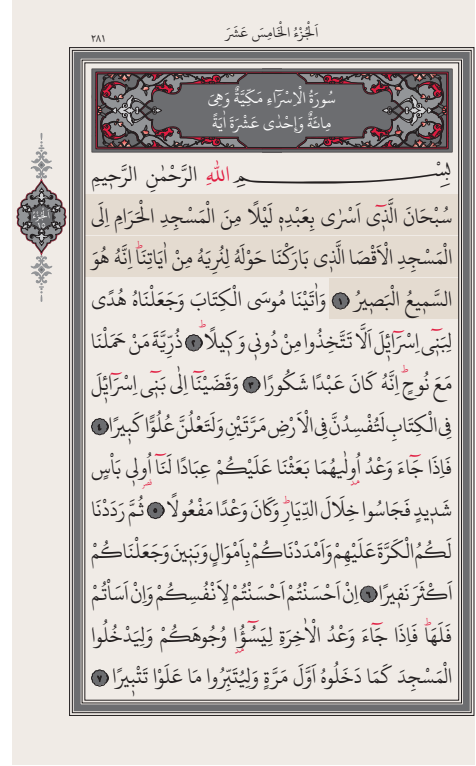 اَلْجُزْءُ الْخَامِسَ عَشَرَ
٢٨١
سُورَةُ الْاِسْرَٓاءِ مَكِّيَّةٌ وَهِيَ
مِائَةٌ وَاِحْدٰى عَشْرَةَ اٰيَةً
بِسْــــــــــــمِ اللّٰهِ الرَّحْمٰنِ الرَّحٖيمِ
سُبْحَانَ الَّذٖٓى اَسْرٰى بِعَبْدِهٖ لَيْلًا مِنَ الْمَسْجِدِ الْحَرَامِ اِلَى
الْمَسْجِدِ الْاَقْصَا الَّذٖى بَارَكْنَا حَوْلَهُ لِنُرِيَهُ مِنْ اٰيَاتِنَاؕ اِنَّهُ هُوَ
السَّمٖيعُ الْبَصٖيرُ ﴿١﴾ وَاٰتَيْنَا مُوسَى الْكِتَابَ وَجَعَلْنَاهُ هُدًى
لِبَنٖٓى اِسْرَٓائٖلَ اَلَّا تَتَّخِذُوا مِنْ دُونٖى وَكٖيلًاؕ ﴿٢﴾ ذُرِّيَّةَ مَنْ حَمَلْنَا
مَعَ نُوحٍؕ اِنَّهُ كَانَ عَبْدًا شَكُورًا ﴿٣﴾ وَقَضَيْنَٓا اِلٰى بَنٖٓى اِسْرَٓائٖلَ
فِى الْكِتَابِ لَتُفْسِدُنَّ فِى الْاَرْضِ مَرَّتَيْنِ وَلَتَعْلُنَّ عُلُوًّا كَبٖيرًا ﴿٤﴾
فَاِذَا جَٓاءَ وَعْدُ اُو۫لٰيهُمَا بَعَثْنَا عَلَيْكُمْ عِبَادًا لَنَٓا اُو۬لٖى بَاْسٍ
شَدٖيدٍ فَجَاسُوا خِلَالَ الدِّيَارِؕ وَكَانَ وَعْدًا مَفْعُولًا ﴿٥﴾ ثُمَّ رَدَدْنَا
لَكُمُ الْكَرَّةَ عَلَيْهِمْ وَاَمْدَدْنَاكُمْ بِاَمْوَالٍ وَبَنٖينَ وَجَعَلْنَاكُمْ
اَكْثَرَ نَفٖيرًا ﴿٦﴾ اِنْ اَحْسَنْتُمْ اَحْسَنْتُمْ لِاَنْفُسِكُمْ وَاِنْ اَسَاْتُمْ
فَلَهَاؕ فَاِذَا جَٓاءَ وَعْدُ الْاٰخِرَةِ لِيَسُٓوؤُ۫ا وُجُوهَكُمْ وَلِيَدْخُلُوا
الْمَسْجِدَ كَمَا دَخَلُوهُ اَوَّلَ مَرَّةٍ وَلِيُتَبِّرُوا مَا عَلَوْا تَتْبٖيرًا ﴿٧﴾